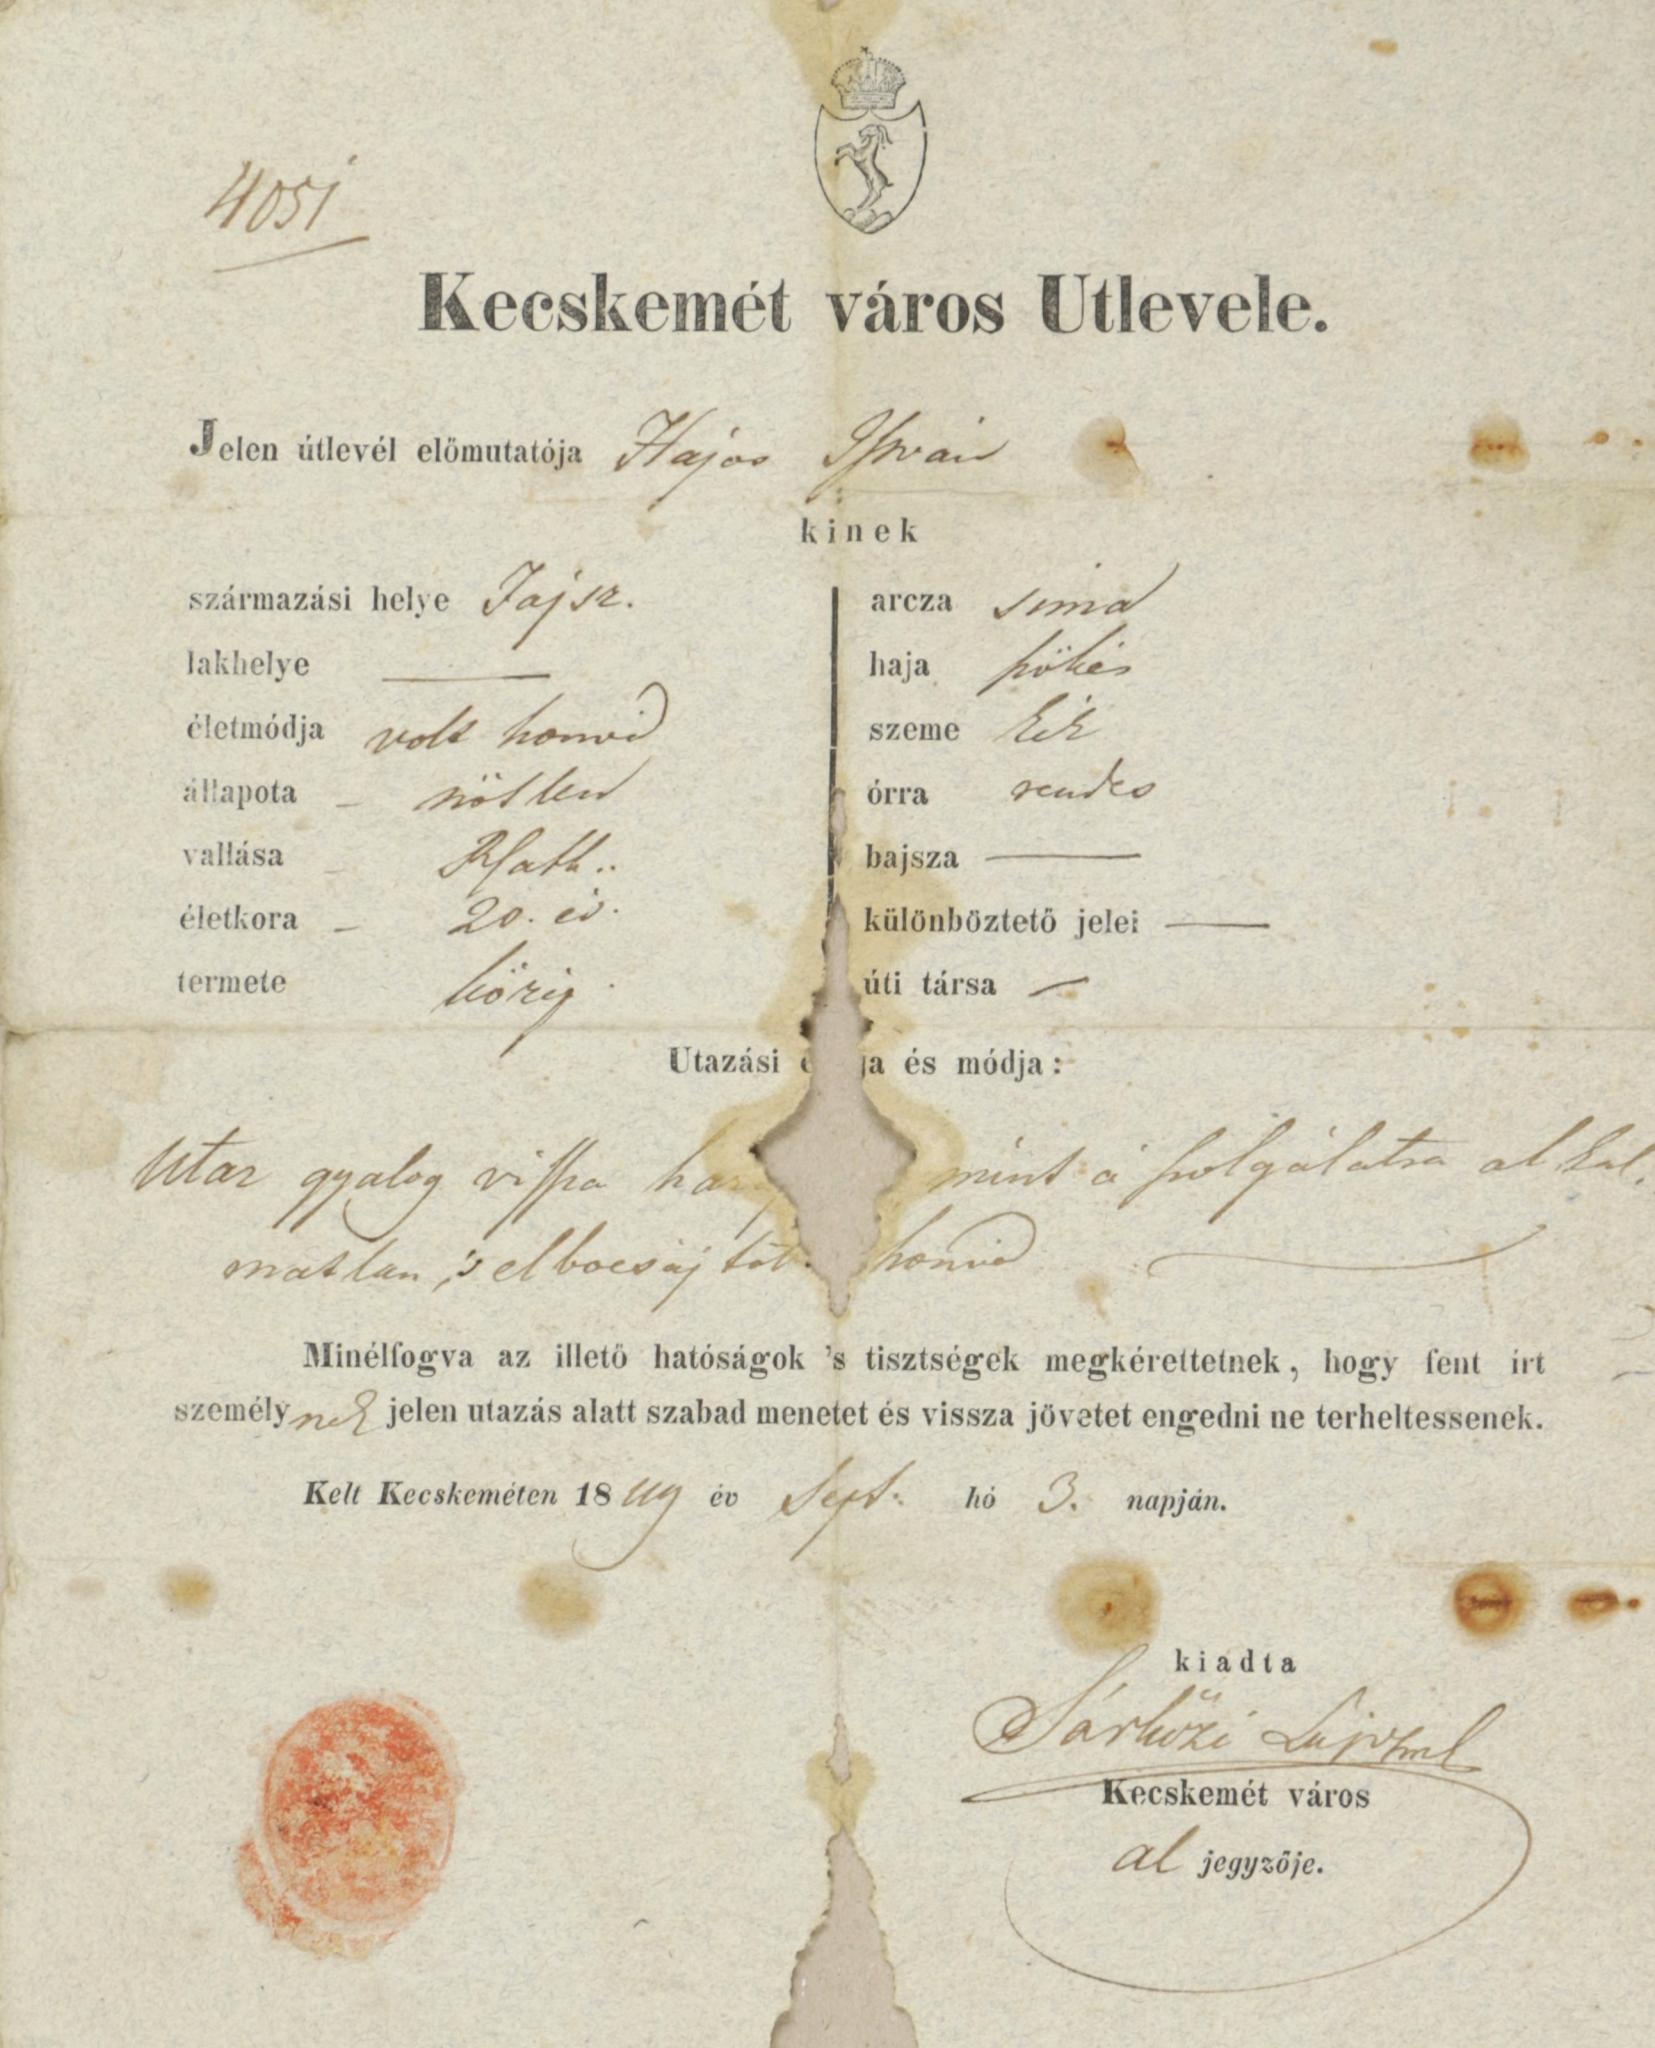 4051
Kecskemét város Utlevele.
Jelen útlevél előmutatója Hajos István
kinek
származási helye Fajsz.
lakhelye
életmódja volt honvéd
állapota – nőtlen
vallása – RKath..
életkora – 20. év.
termete
arcza sima
haja szőke
szeme kék
órra rendes
bajsza —
különböztető jelei —
úti társa –
Utazási és módja:
Utaz gyalog vissza mint a szolgálatra alkal.
matlan, 's elbocsájtot honvéd
Minélfogva az illető hatóságok 's tisztségek megkérettetnek, hogy fent írt
személynek jelen utazás alatt szabad menetet és vissza jövetet engedni ne terheltessenek.
Kelt Kecskeméten 1849 év Sept. hó 3. napján.
kiadta
Sárközi Lajos
Kecskemét város
al jegyzője.